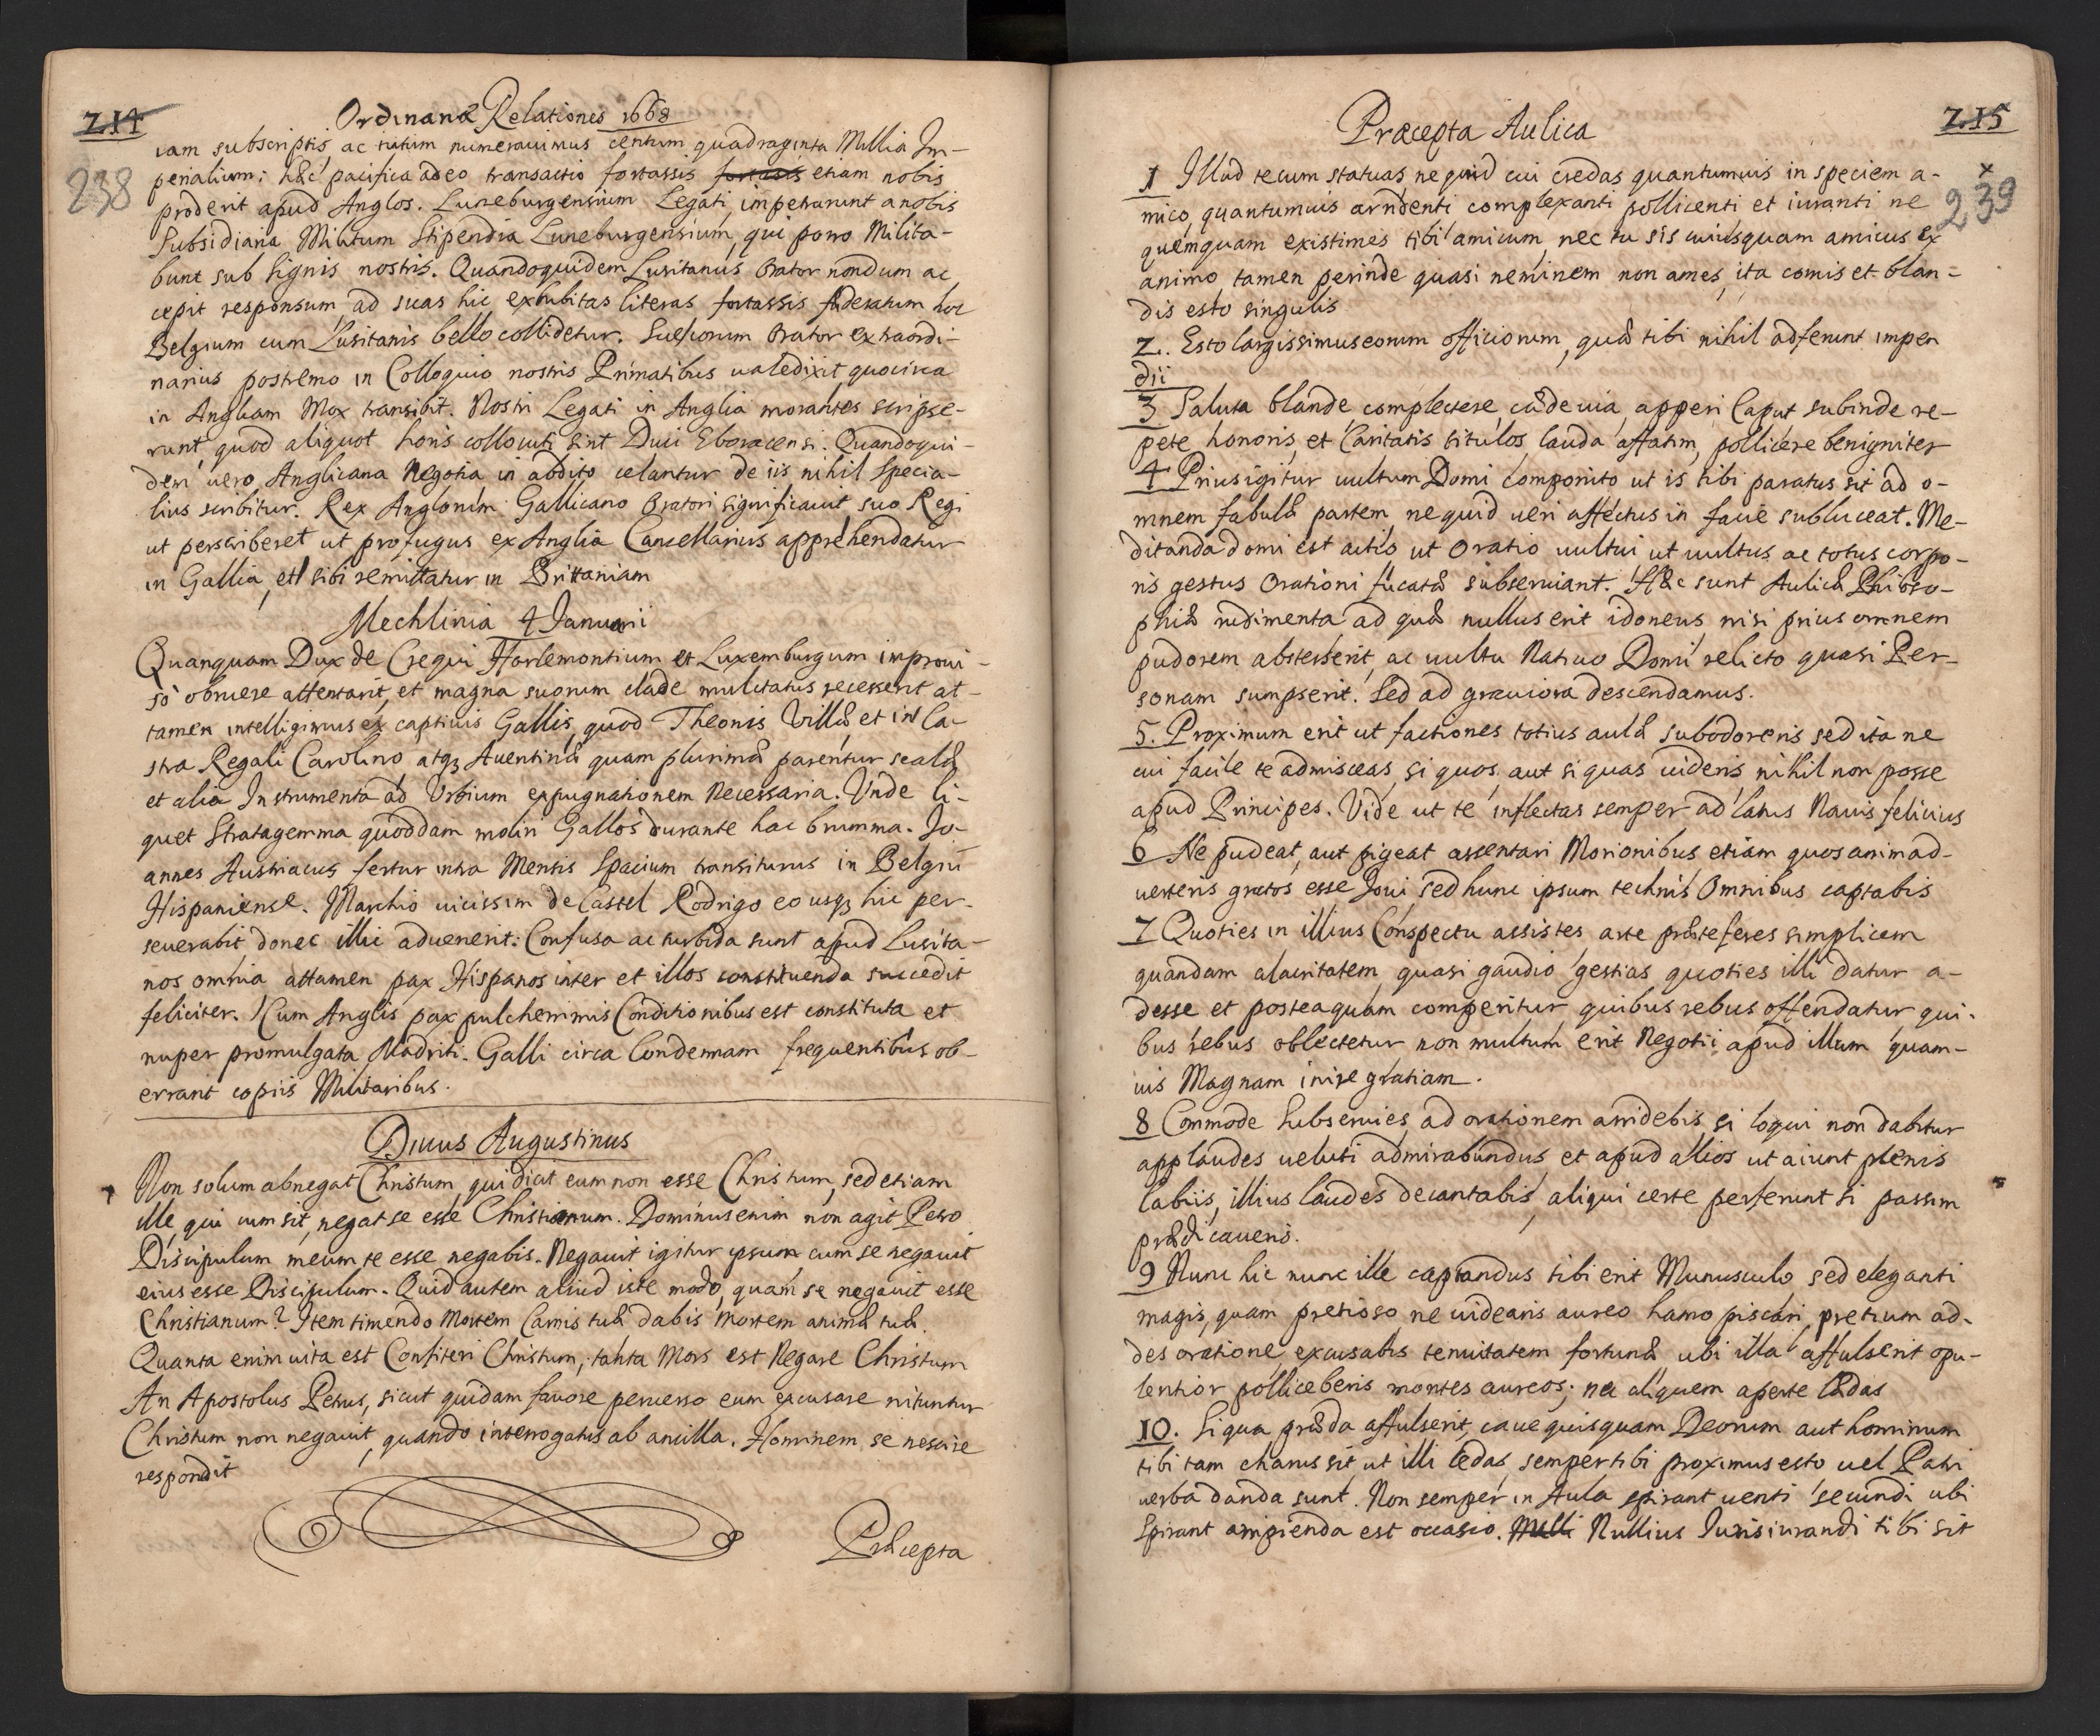 214
Ordinariæ Relationes 1668
238
iam subscriptis ac ritum numerauimus centum quadraginta Millia Im-
perialium: hæc pacifica adeo transactio fortassis fortassis etiam nobis
proderit apud Anglos. Luneburgensium Legati, impetrarunt a nobis
Subsidiaria Militum Stipendia Luneburgensium, qui porro Milita-
bunt sub signis nostris. Quandoquidem Lusitanus Orator nondum ac
cepit responsum, ad suas hic exhibitas literas, fortassis fœderatum hoc
Belgium cum Lusitanis bello collidetur. Suecorum Orator extraordi-
narius postremo in Colloquio nostris Primatibus ualedixit quocirca
in Angliam Mox transibit. Nostri Legati in Anglia morantes scripse-
runt, quod aliquot horis collocuti sint Duci Eboracensi. Quandoqui-
dem uero Anglicana Negotia in abdito celantur de iis nihil specia-
lius scribitur. Rex Anglorum Gallicano Oratori significauit suo Regi
ut perscriberet ut profugus ex Anglia Cancellarius apprehendatur
in Gallia, et sibi remittatur in Brittaniam
Mechlinia 4 Januarii
Quanquam Dux de Crequi Harlemontium et Luxemburgum improui-
so obruere attentarit, et magna suorum clade mulctatus recesserit at-
tamen intelligimus ex captiuis Gallis, quod Theonis Villæ et in Ca-
stra Regali Carolino atq3 Auentinæ quam plurimæ parentur scalæ
et alia Instrumenta ad Vrbium expugnationem Necessaria. Vnde li-
quet Stratagemma quoddam moliri Gallos durante hac brumma. Jo-
annes Austriacus fertur intra Mensis Spacium transiturus in Belgiũ
Hispaniense. Marchio uicissim de Castel Rodrigo eo usq3 hic per-
seuerabit donec illic aduenerit. Confusa ac turbida sunt apud Lusita-
nos omnia attamen pax Hispanos inter et illos constituenda succedit
feliciter. Cum Anglis pax pulcherrimis Conditionibus est constituta et
nuper promulgata Madriti. Galli circa Condennam frequentibus ob-
errant copiis Militaribus.
Diuus Augustinus
Non solum abnegat Christum, qui dicit eum non esse Christum, sed etiam
ille, qui cum sit, negat se esse Christianum. Dominus enim non agit Petro
Discipulum meum te esse negabis. Negauit igitur ipsum cum se negauit
eius esse Discipulum. Quid autem aliud iste modo, quam se negauit esse
Christianum? Item timendo Mortem Carnis tuæ dabis mortem animæ tuæ.
Quanta enim uita est Confiteri Christum, tanta Mors est Negare Christum
An Apostolus Petrus, sicut quidam fauore peruerso eum excusare nituntur
Christum non negauit, quando interrogatus ab ancilla. Hominem se nescire
respondit
Præcepta
215
Præcepta Aulica
x
239
1 Illud tecum statuas, ne quid cui credas quantumuis in speciem a-
mico, quantumuis arridenti complexanti pollicenti et iuranti ne
quemquam existimes tibi amicum, nec tu sis cuiusquam amicus ex
animo, tamen perinde quasi neminem non ames, ita comis et blan-
dis esto singulis
2. Esto largissimus eorum officiorum, quæ tibi nihil adferunt impen
dii
3 Saluta blande complectere cæde uia, apperi Caput subinde re-
pete honoris, et Caritatis titulos, lauda affatim, pollicere benigniter
4 Prius igitur uultum Domi componito ut is tibi paratus sit ad o-
mnem fabulæ partem, ne quid ueri affectus in facie subluceat. Me-
ditanda domi est actio ut Oratio uultui ut uultus ac totus corpo-
ris gestus Orationi fucatæ subseruiant. Hæc sunt Aulicæ Philoso-
phiæ rudimenta ad quæ nullus erit idoneus nisi prius omnem
pudorem absterserit, ac uultu Natiuo Domi relicto quasi Per-
sonam sumpserit. Sed ad grauiora descendamus.
5. Proximum erit ut factiones totius aulæ subodoreris sed ita ne
cui facile te admisceas, si quos aut si quas uideris nihil non posse
apud Principes. Vide ut te inflectas semper ad latus Nauis felicius
6 Ne pudeat, aut pigeat assentari Morionibus etiam quos animad-
uerteris gratos esse Joui, sed hunc ipsum technis Omnibus captabis
7 Quoties in illius Conspectu assistes arte præteferes simplicem
quandam alacritatem, quasi gaudio gestias quoties illi datur a-
desse et posteaquam comperitur quibus rebus offendatur qui-
bus rebus oblectetur non multum erit Negotii apud illum quam-
uis Magnam inire gratiam.
8 Commode Subseruies, ad orationem arridebis, si loqui non dabitur
applaudes ueluti admirabundus, et apud alios ut aiunt plenis
labiis, illius laudes decantabis, aliqui certe perferunt si passim
prædicaueris.
9 Nunc hic nunc ille captandus tibi erit Munusculo, sed eleganti
magis, quam pretioso, ne uidearis aureo hamo piscari, pretium ad-
des oratione, excusabis tenuitatem fortunæ ubi illa affulserit opu-
lentior polliceberis montes aureos; ne aliquem aperte lædas
10. Si qua præda affulserit, caue quisquam Deorum aut hominum
tibi tam charus sit, ut illi cedas, semper tibi proximus esto uel Patri
uerba danda sunt. Non semper in Aula spirant uenti secundi ubi
Spirant arripienda est occasio. Nulli Nullius Iurisiurandi tibi sit